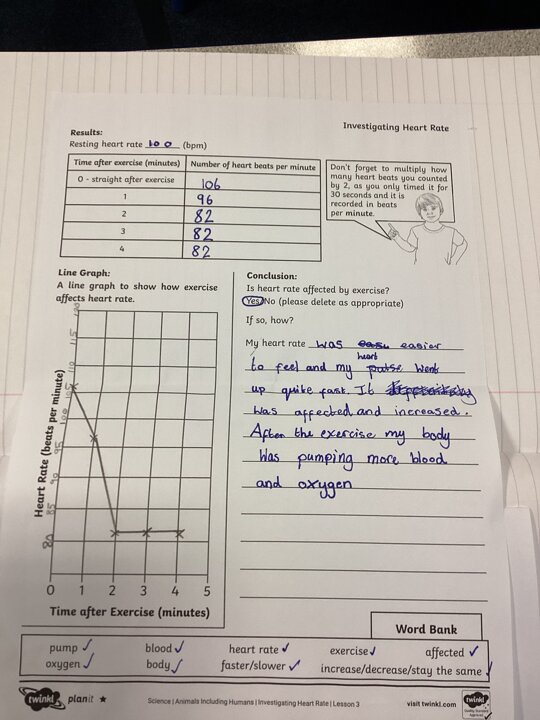 Investigating Heart Rate
Results:
Resting heart rate 100 (bpm)
Time after exercise (minutes) Number of heart beats per minute
0 - straight after exercise 106
1 96
2 82
3 82
4 82
Don't forget to multiply how
many heart beats you counted
by 2, as you only timed it for
30 seconds and it is
recorded in beats
per minute.
Line Graph:
A line graph to show how exercise
affects heart rate.
Heart Rate (beats per minute)
115
110
105
100
95
90
85
80
0 1 2 3 4 5
Time after Exercise (minutes)
Conclusion:
Is heart rate affected by exercise?
Yes/No (please delete as appropriate)
If so, how?
My heart rate was easier
to feel and my heart went
up quite fast. It
was affected and increased.
After the exercise my body
was pumping more blood
and oxygen
Word Bank
pump blood heart rate exercise affected
oxygen body faster/slower increase/decrease/stay the same
twinkl planit Science | Animals Including Humans | Investigating Heart Rate | Lesson 3 visit twinkl.com